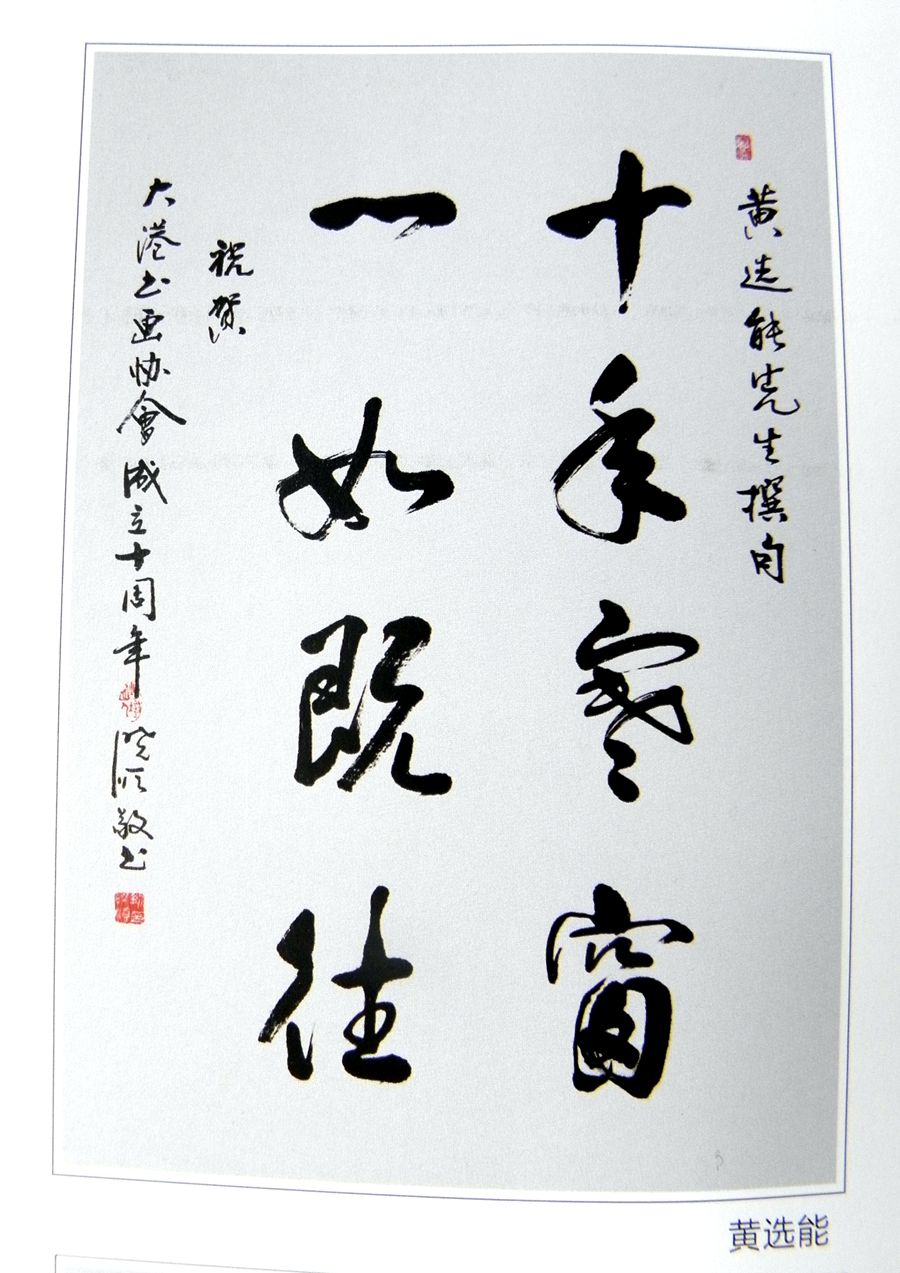 黄选能先生撰句
十年寒窗
一如既往
祝贺
大港书画协會成立十周年
晓顺敬书
黄选能